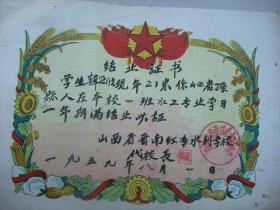 结业证书
学生韓 现年21岁係山西省
縣人在本校一班水工专业学习
一年期满结业此証
山西省晋南 专水利学校
代校長
一九五九年八月一日